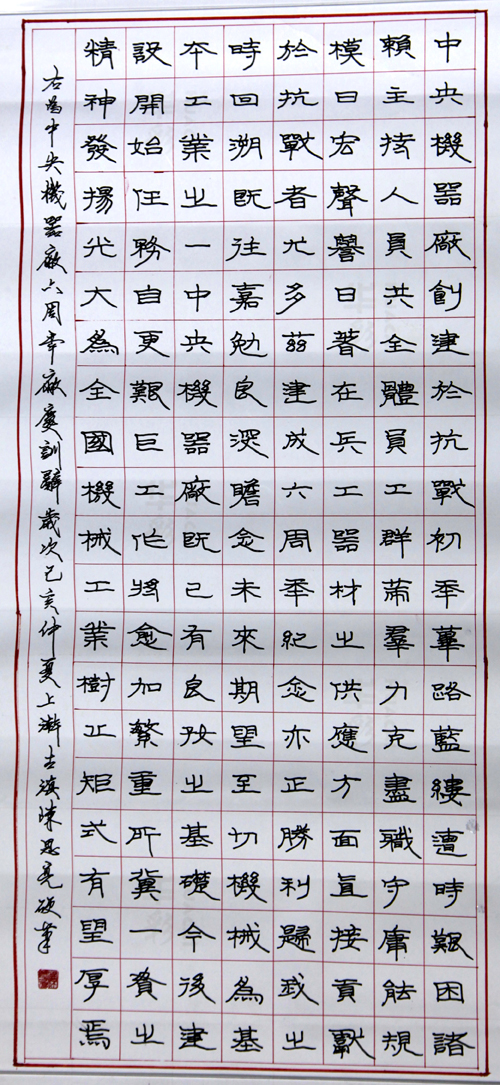 中央機器廠創建於抗戰初年蓽路藍縷遭時艱困諸
賴主持人員共全體員工群策羣力克盡職守庸能規
模日宏聲譽日著在兵工器材之供應方面直接貢獻
於抗戰者尤多茲建成六周年紀念亦正勝利歸我之
時回溯既往嘉勉良深瞻念未來期望至切機械為基
本工業之一中央機器廠既已有良好之基礎今後建
設開始任務自更艱巨工作將愈加繁重所冀一貫之
精神發揚光大為全國機械工業樹立矩式有望厚焉
右為中央機器廠六周年廠慶訓辭歲次己亥仲夏上澣古滇陳思亮硬筆